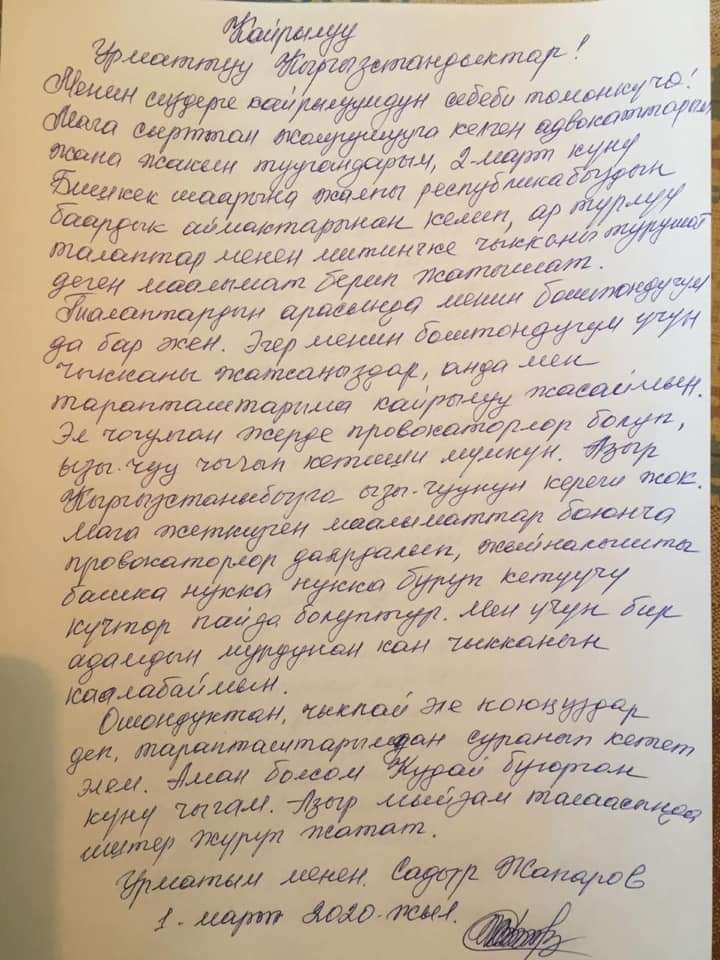 Кайрылуу
Урматтуу Кыргызстандыктар!
Менин сиздерге кайрылуумдун себеби томонкучо!
Мага сырттан жолугушууга келген адвокаттарым
жана жакын туугандарым, 2-март куну
Бишкек шаарына жалпы республикабыздын
баардык аймактарынан келип, ар турлуу
талаптар менен митингке чыкканы турушат
деген маалымат берип жатышат.
Талаптардын арасында менин боштондугум
да бар экен. Эгер менин боштондугум учун
чыкканы жатсаңыздар, анда мен
тарапташтарыма кайрылуу жасаймын.
Эл чогулган жерде провокаторлор болуп,
ызы-чуу чыгып кетиши мумкун. Азыр
Кыргызстаныбызга ызы-чуунун кереги жок.
Мага жеткирген маалыматтар боюнча
провокаторлор даярдалып, жыйналышты
башка нукка нукка буруп кетуучу
кучтор пайда болуптур. Мен учун бир
адамдын мурдунан кан чыкканын
каалабаймын.
Ошондуктан, чыкпай эле коюңуздар
деп, тарапташтарымдан суранып кетет
элем. Аман болсом Кудай буюрган
куну чыгам. Азыр мыйзам талаасында
иштер журуп жатат.
Урматым менен. Садыр Жапаров
1-март 2020-жыл.